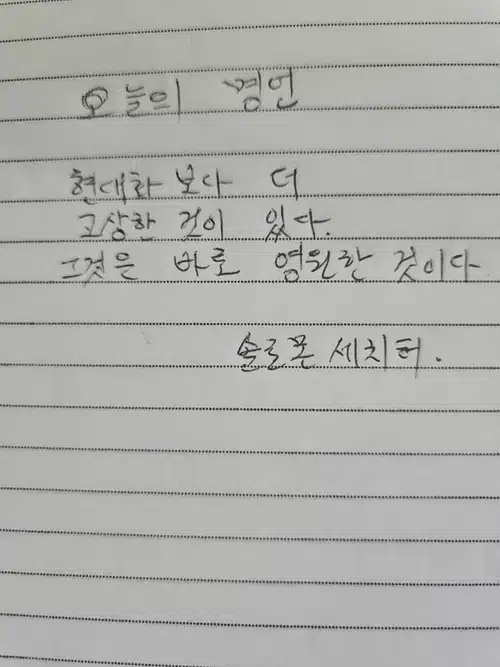 오늘의 명언
현대화 보다 더
고상한 것이 있다.
그것은 바로 영원한 것이다
솔로몬 세치터.